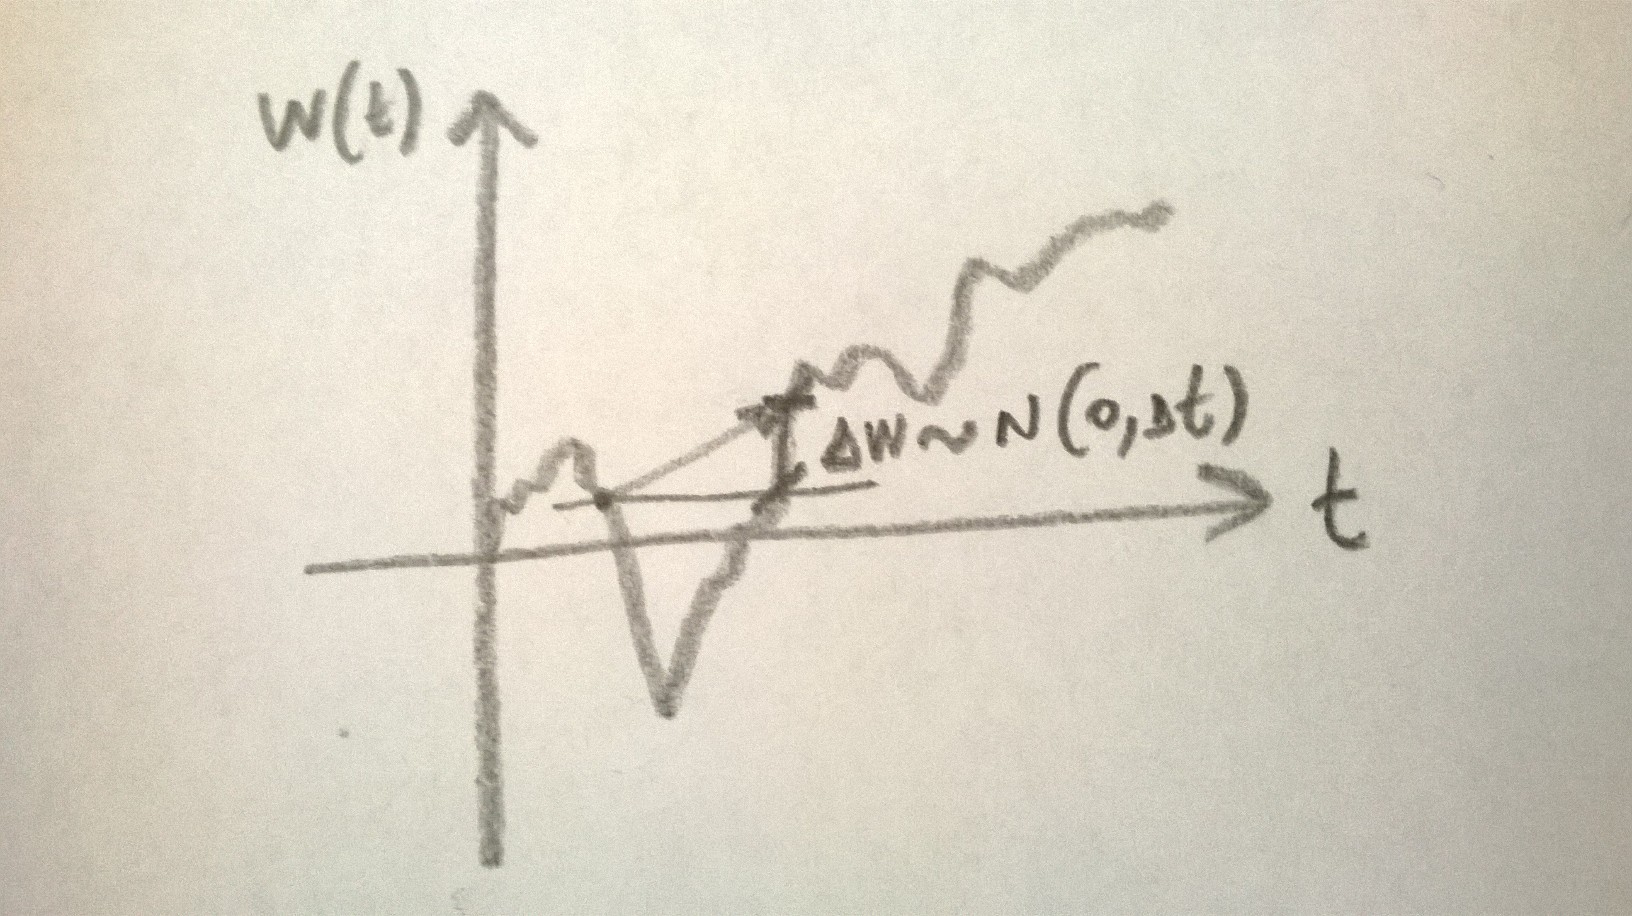 W(t)
ΔW ~ N(0,Δt)
t